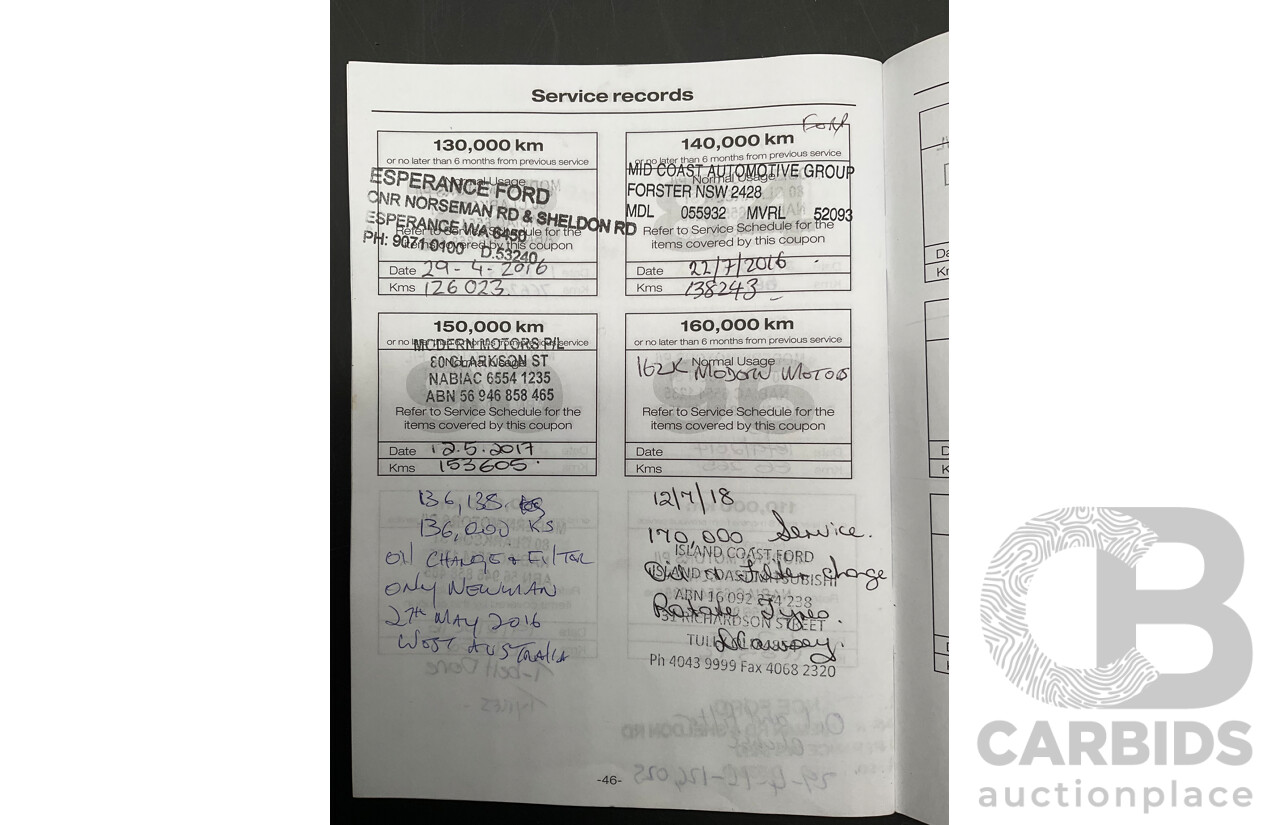 Service records
130,000 km
or no later than 6 months from previous service
Normal Usage
ESPERANCE FORD
CNR NORSEMAN RD & SHELDON RD
ESPERANCE WA 6450
PH: 9071 0100 D.53240
Refer to Service Schedule for the
items covered by this coupon
Date 29-4-2016
Kms 126023
FORD
140,000 km
or no later than 6 months from previous service
Normal Usage
MID COAST AUTOMOTIVE GROUP
FORSTER NSW 2428
MDL 055932 MVRL 52093
Refer to Service Schedule for the
items covered by this coupon
Date 22/7/2016
Kms 138243
150,000 km
or no later than 6 months from previous service
Normal Usage
MODERN MOTORS P/L
80 CLARKSON ST
NABIAC 6554 1235
ABN 56 946 858 465
Refer to Service Schedule for the
items covered by this coupon
Date 12.5.2017
Kms 153605
160,000 km
or no later than 6 months from previous service
Normal Usage
162K MODERN MOTORS
Refer to Service Schedule for the
items covered by this coupon
Date
Kms
136,138
136,000 KS
OIL CHANGE & FILTER
ONLY NEWMAN
27th MAY 2016
WEST AUSTRALIA
12/7/18
170,000 Service.
ISLAND COAST FORD
ISLAND COAST MITSUBISHI
Oil & filter change
ABN 16 092 238
Rotate Tyres.
RICHARDSON STREET
TULLY
Ph 4043 9999 Fax 4068 2320
-46-
CARBIDS
auctionplace